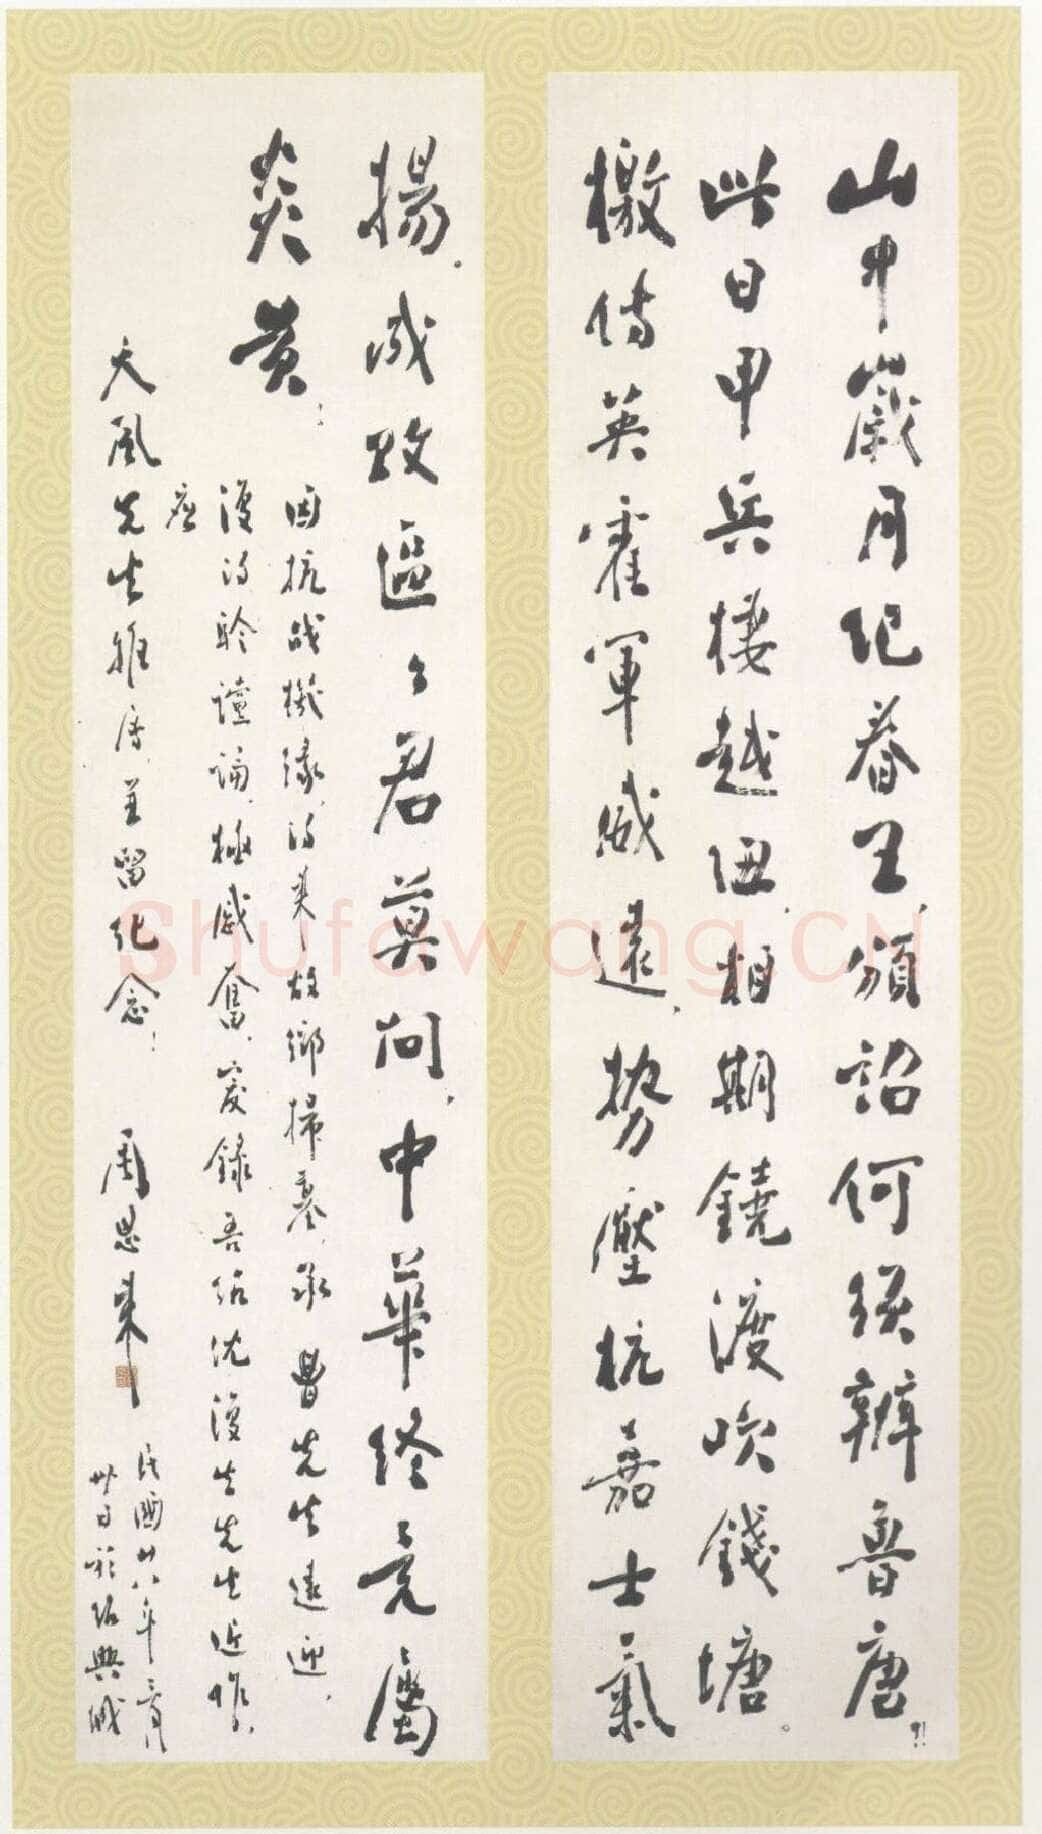 山中歲月紀春王，頒詔何緣辨魯唐
此日甲兵棲越甸，相期鐃渡吹錢塘。
檄傳英霍軍威遠，勢壓杭嘉士氣
揚。成敗區々君莫問，中華終竟屬
炎黃：
因抗战機緣，得来故鄉掃墓，承曹先生遠迎，
復得聆讜論，極感奮，爰錄吾紹沈復生先生近作，
应
大風先生雅属，並留紀念：
周恩來
民國廿八年三月
卅日於紹興城
Shufawang.CN